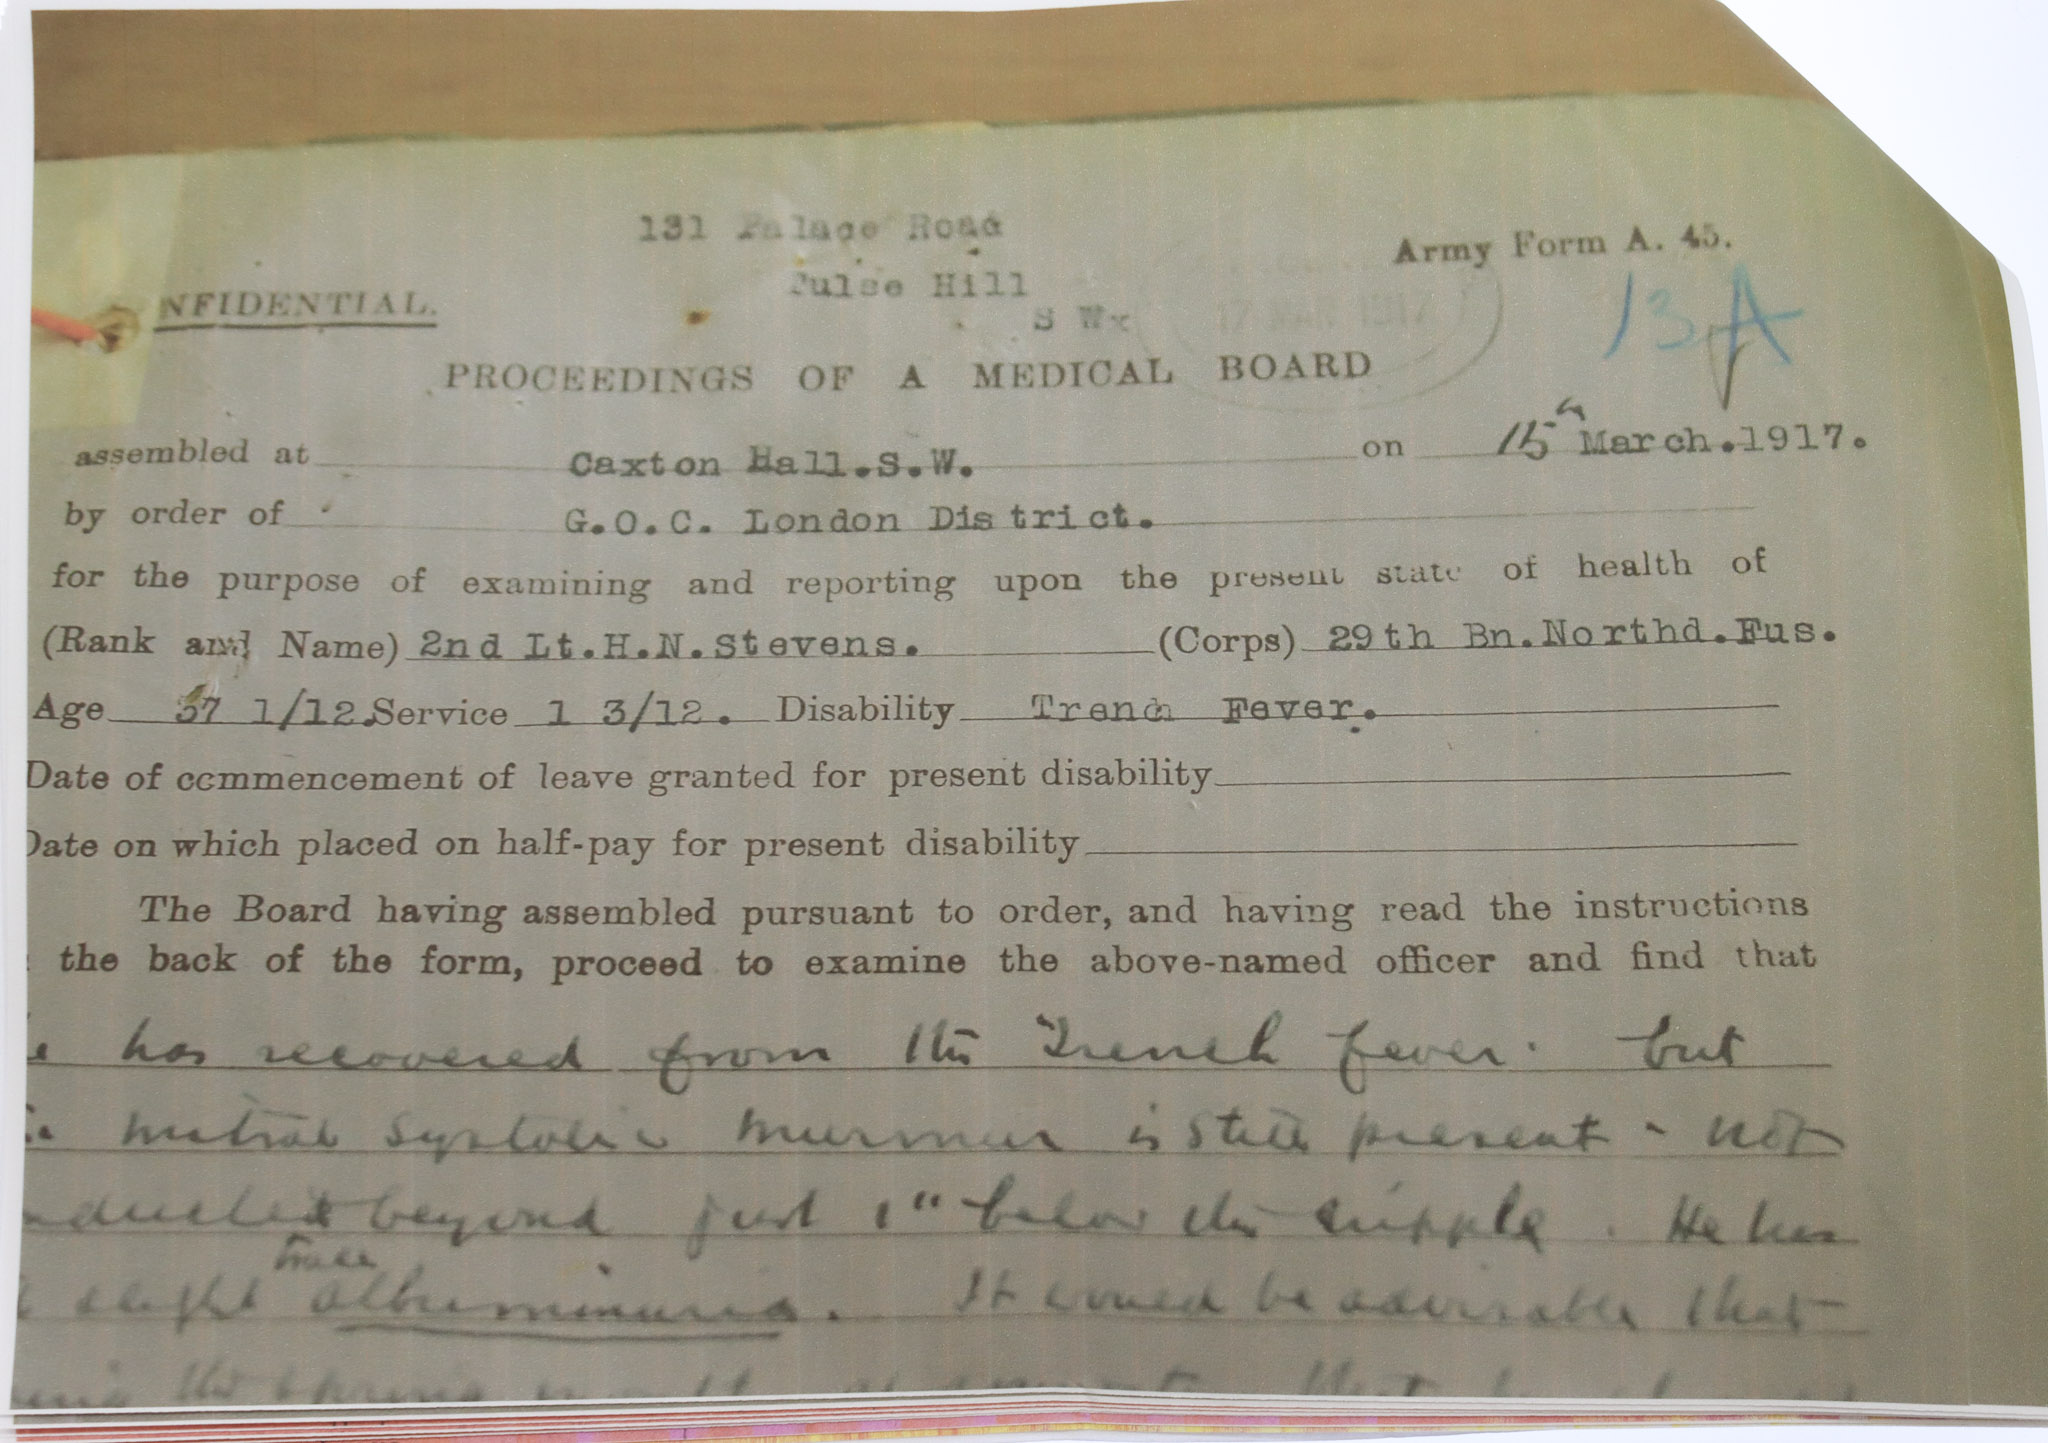 131 Palace Road
Tulse Hill
S W
Army Form A. 45.
13A
NFIDENTIAL.
17 MAR 1917
PROCEEDINGS OF A MEDICAL BOARD
assembled at Caxton Hall.S.W. on 15th March.1917.
by order of G.O.C. London District.
for the purpose of examining and reporting upon the present state of health of
(Rank and Name) 2nd Lt.H.N.Stevens. (Corps) 29th Bn.Northd.Fus.
Age 37 1/12.Service 1 3/12. Disability Trench Fever.
Date of commencement of leave granted for present disability
Date on which placed on half-pay for present disability
The Board having assembled pursuant to order, and having read the instructions
the back of the form, proceed to examine the above-named officer and find that
has recovered from the Trench fever. but
mitral systolic murmur is still present - not
nducted beyond just 1" below the nipple. He has
slight trace albuminuria. It would be advisable that
the spring